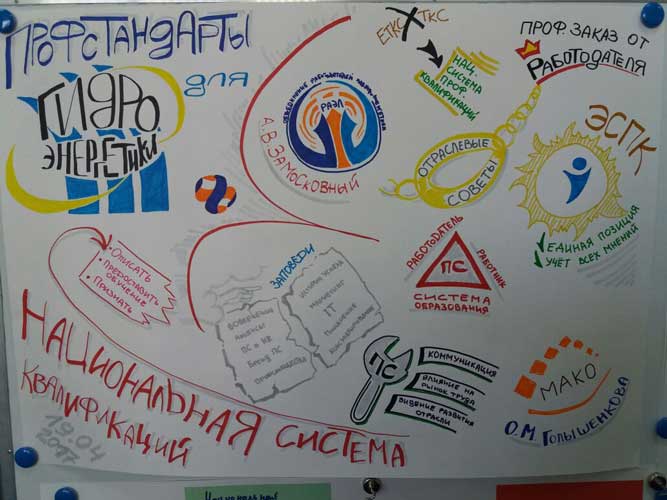 ПРОФСТАНДАРТЫ
ДЛЯ
ГИДРО
ЭНЕРГЕТИКИ
ОБЪЕДИНЕНИЕ РАБОТОДАТЕЛЕЙ
РАЭЛ
А.В. ЗАМОСКОВНЫЙ
ЕТКС ТКС
НАЦ.
СИСТЕМА
ПРОФ
КВАЛИФИКАЦИЙ
ПРОФ. ЗАКАЗ ОТ
РАБОТОДАТЕЛЯ
ОТРАСЛЕВЫЕ
СОВЕТЫ
ЭСПК
ЕДИНАЯ ПОЗИЦИЯ
УЧЕТ ВСЕХ МНЕНИЙ
• ОПИСАТЬ
• ПРЕДОСТАВИТЬ
ОБУЧЕНИЕ
• ПРИЗНАТЬ
ЗАПОВЕДИ
РАБОТОДАТЕЛЬ
РАБОТНИК
ПС
СИСТЕМА
ОБРАЗОВАНИЯ
ПС
КОММУНИКАЦИЯ
ВЛИЯНИЕ НА
РЫНОК ТРУДА
ВИДЕНИЕ РАЗВИТИЯ
ОТРАСЛИ
МАКО
О.М. ГОЛЫШЕНКОВА
НАЦИОНАЛЬНАЯ СИСТЕМА
КВАЛИФИКАЦИЙ
19.04
2017